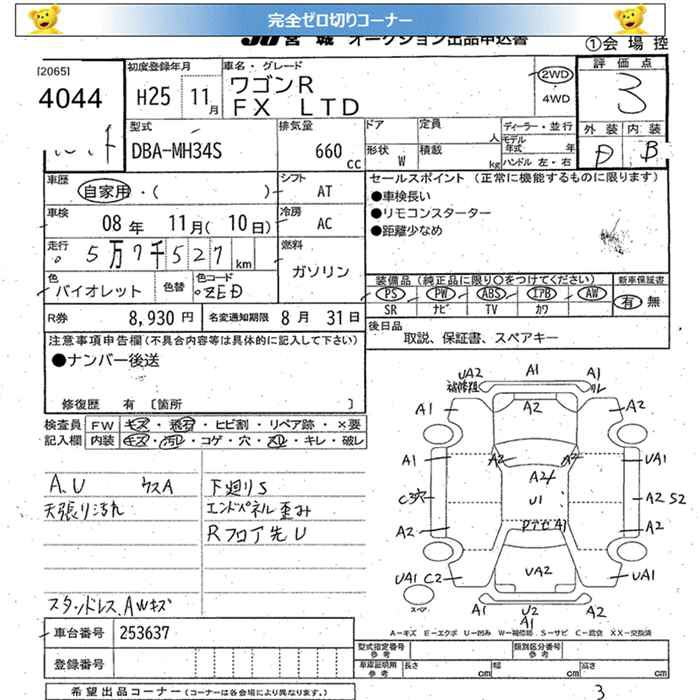 完全ゼロ切りコーナー
JU宮城 オークション出品申込書
①会場控
[2065]
4044
初度登録年月
H25 11月
車名・グレード
ワゴンR
FX LTD
2WD
4WD
評価点
3
外装 内装
D B
型式
DBA-MH34S
排気量
660 cc
ドア 定員 人
形状 W 積載 kg
ディーラー・並行
モデル年式 年
ハンドル 左・右
車歴
自家用・( )
シフト AT
車検
08年 11月(10日)
冷房 AC
走行
5万7千527km
燃料 ガソリン
色 バイオレット
色替
色コード ZED
R券 8,930円
名変通知期限 8月 31日
セールスポイント (正常に機能するものに限ります)
●車検長い
●リモコンスターター
●距離少なめ
装備品(純正品に限り○をつけてください)
新車保証書
PS PW ABS エアB AW
有 無
SR ナビ TV カワ
後日品
取説、保証書、スペアキー
注意事項申告欄(不具合内容等は具体的に記入して下さい)
●ナンバー後送
修復歴 有 〔箇所 〕
検査員記入欄
FW キズ・飛石・ヒビ割・リペア跡・×要
内装 キズ・汚れ・コゲ・穴・スレ・キレ・破レ
A.U ウスA
天張り汚れ
スタンドレス、AWキズ
下廻りS
エンドパネル歪み
Rフロア先U
UA2 A1 A1
A1 A2 A2
A1 A2 A2 UA1
A24
C穴 U1 A2 S2
A2 A1 A2
UA1 C2 UA2 UA1
スペア A1 U2 A1
A1
A-キズ E-エクボ U-凹み W-補修跡 S-サビ C-腐食 XX-交換済
車台番号 253637
登録番号
型式指定番号 参考
類別区分番号 参考
車庫証明用 参考
長さ cm 幅 cm 高さ cm
希望出品コーナー(コーナーは各会場により異ります)
3